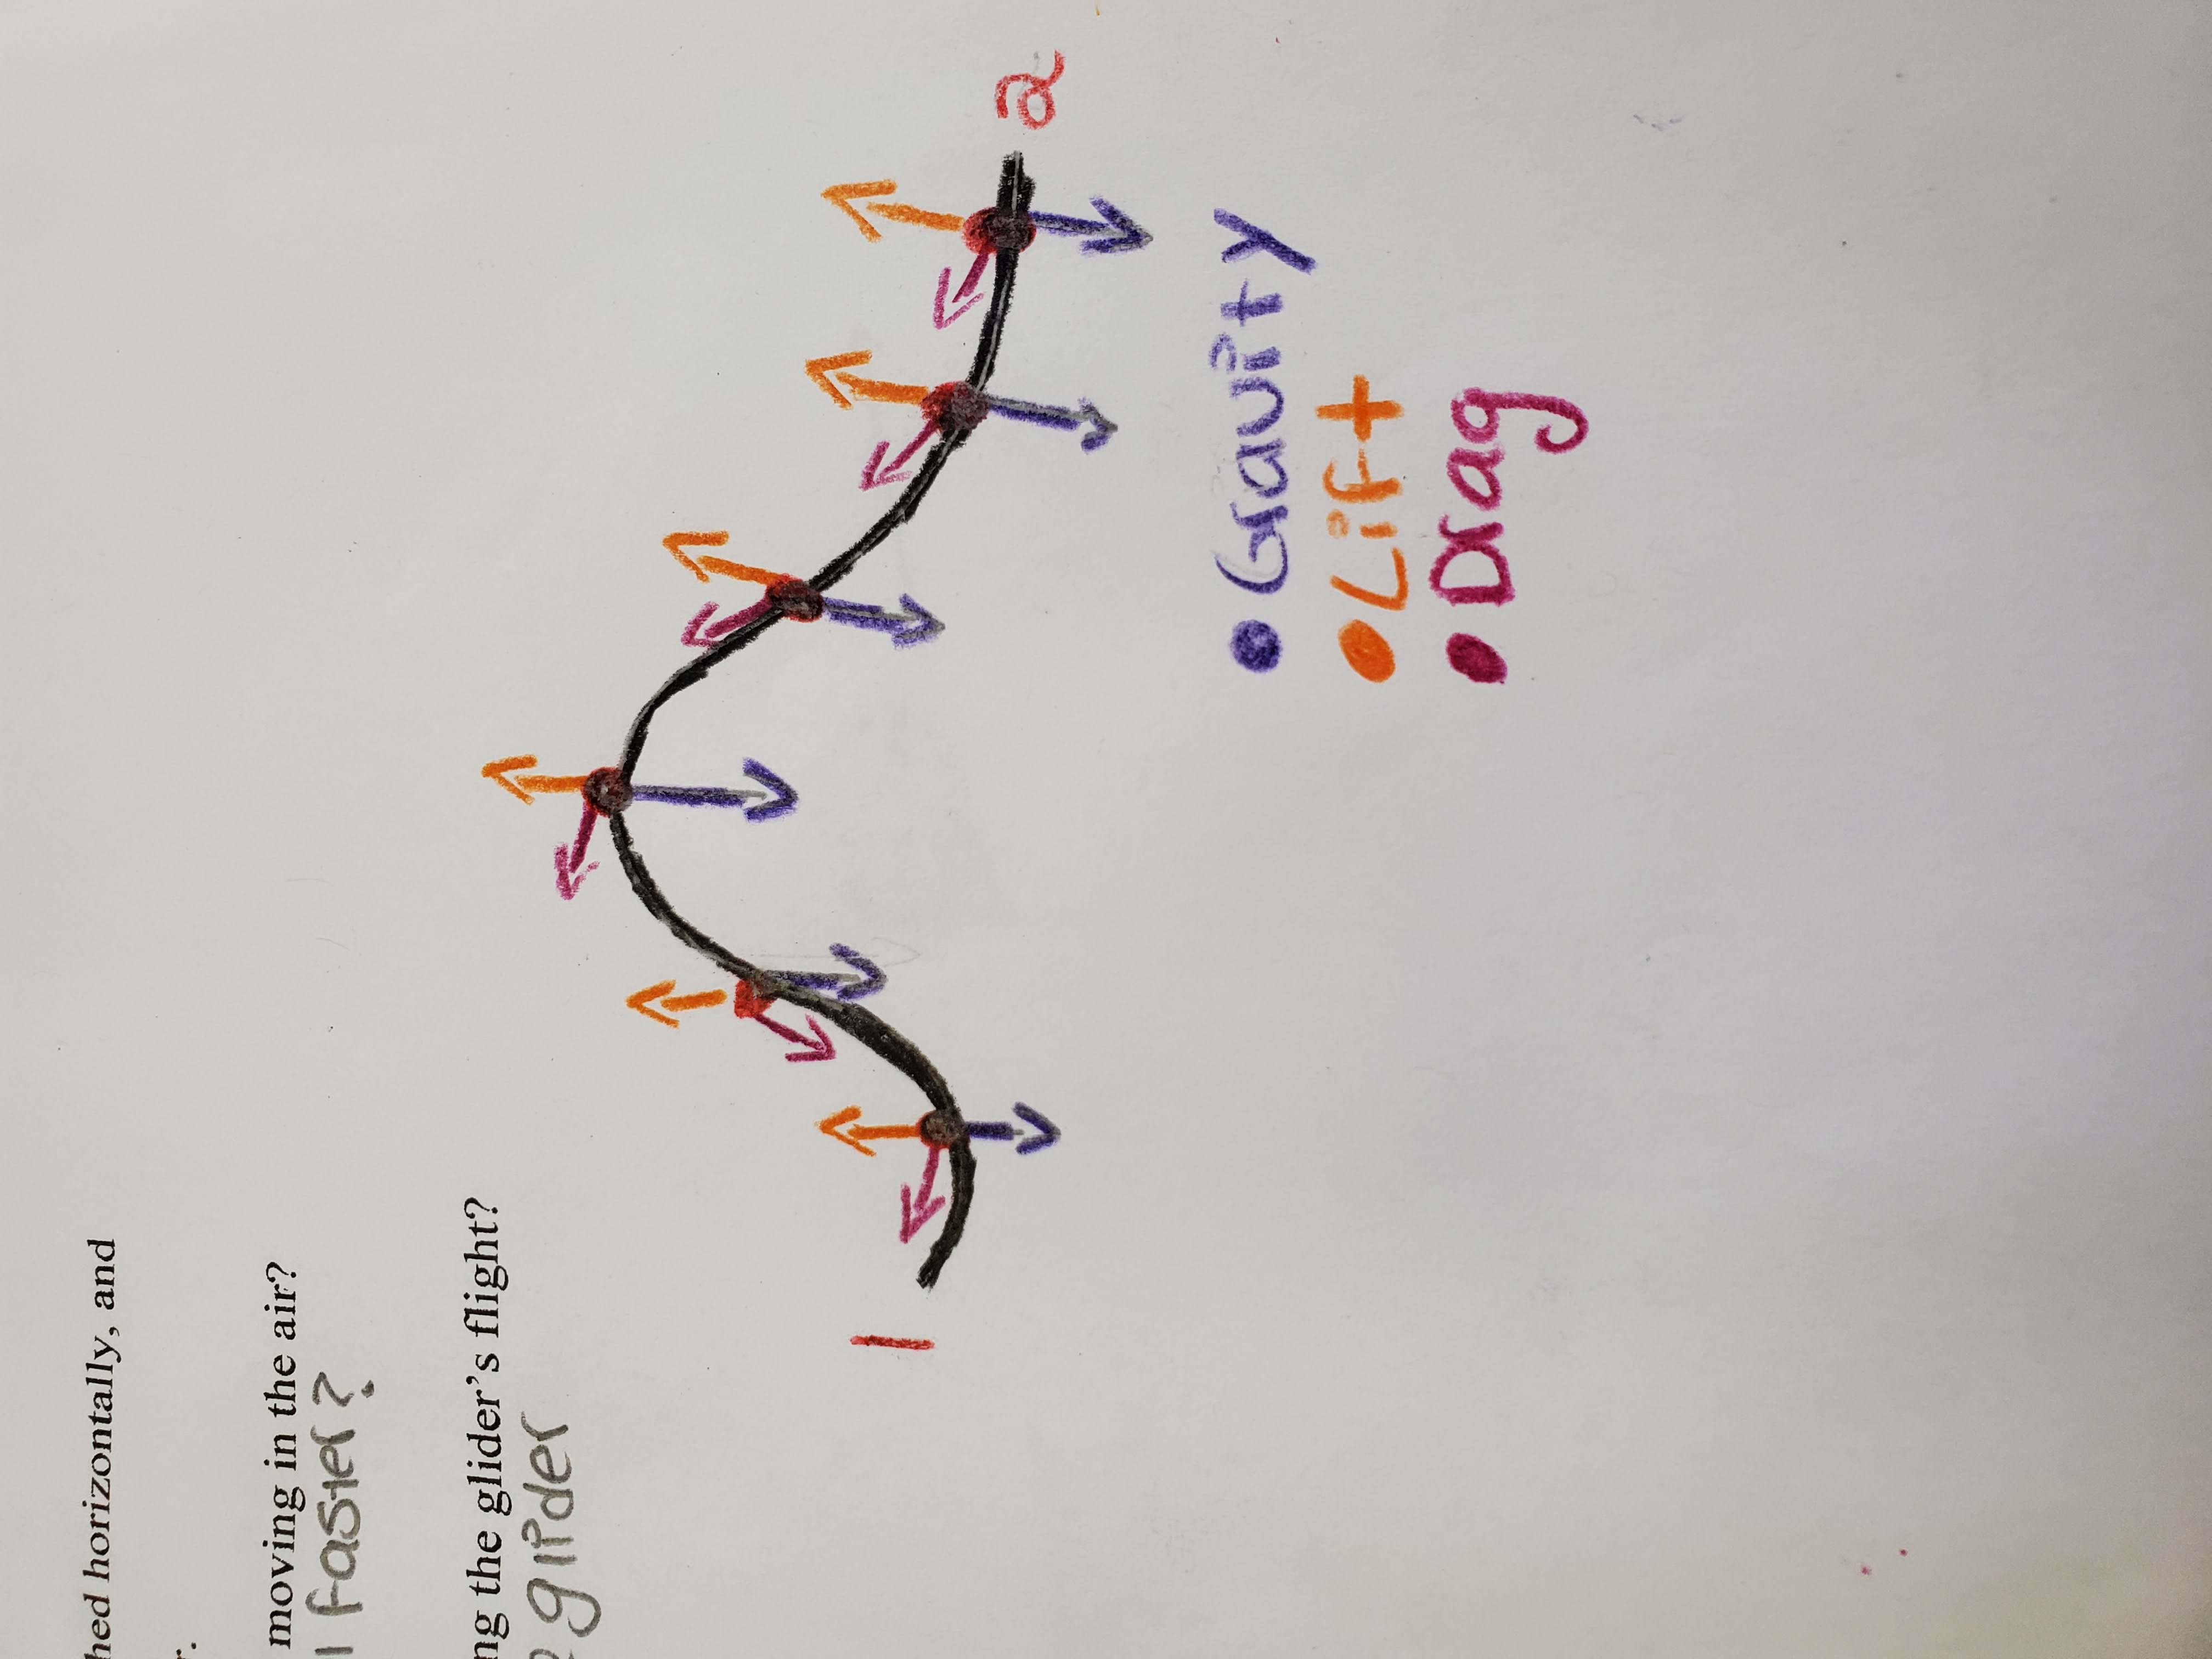 hed horizontally, and
r.
moving in the air?
faster?
ng the glider's flight?
glider
1
2
Gravity
Lift
Drag